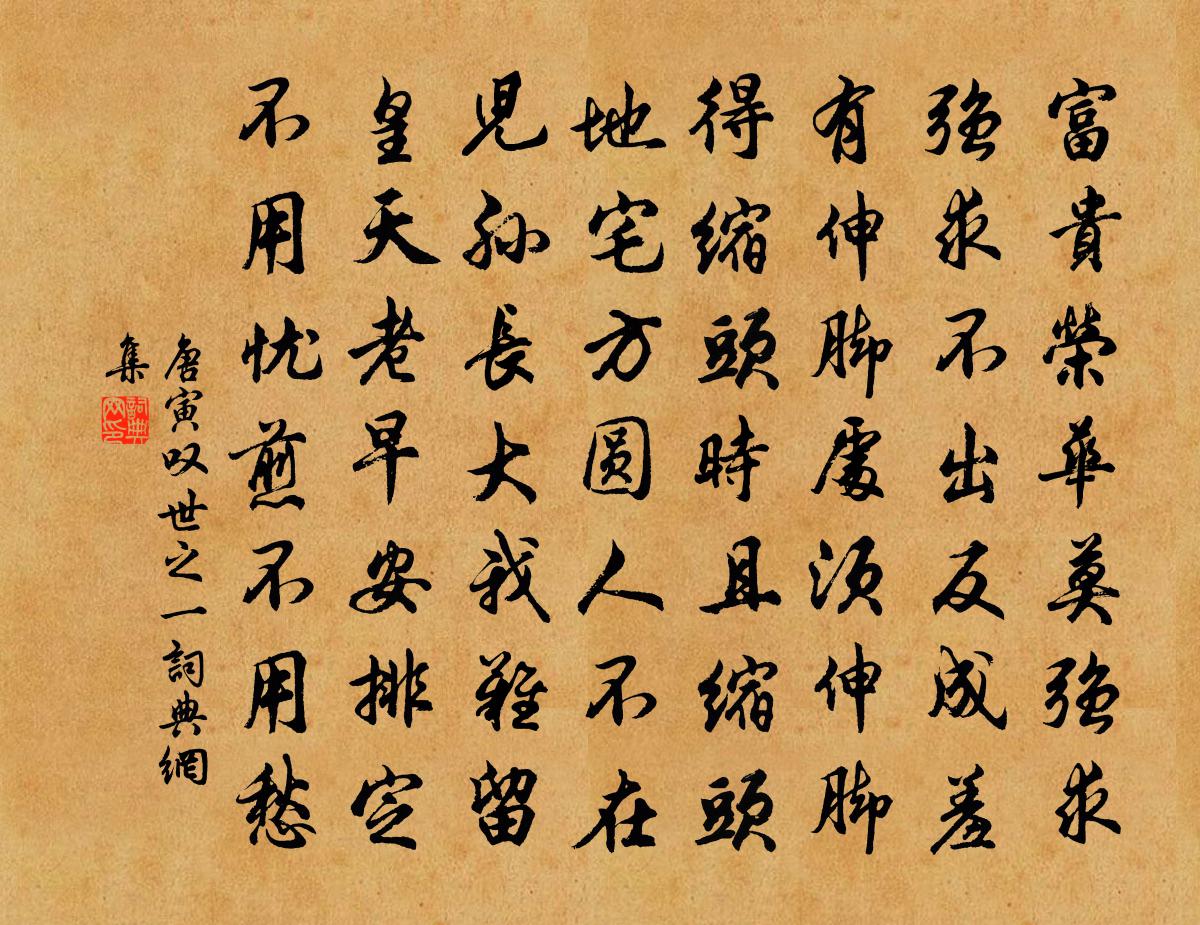 富貴榮華莫強求
強求不出反成羞
有伸脚處須伸脚
得縮頭時且縮頭
地宅方圆人不在
兒孫長大我難留
皇天老早安排定
不用忧煎不用愁
唐寅叹世之一詞典網
集
詞典
网印